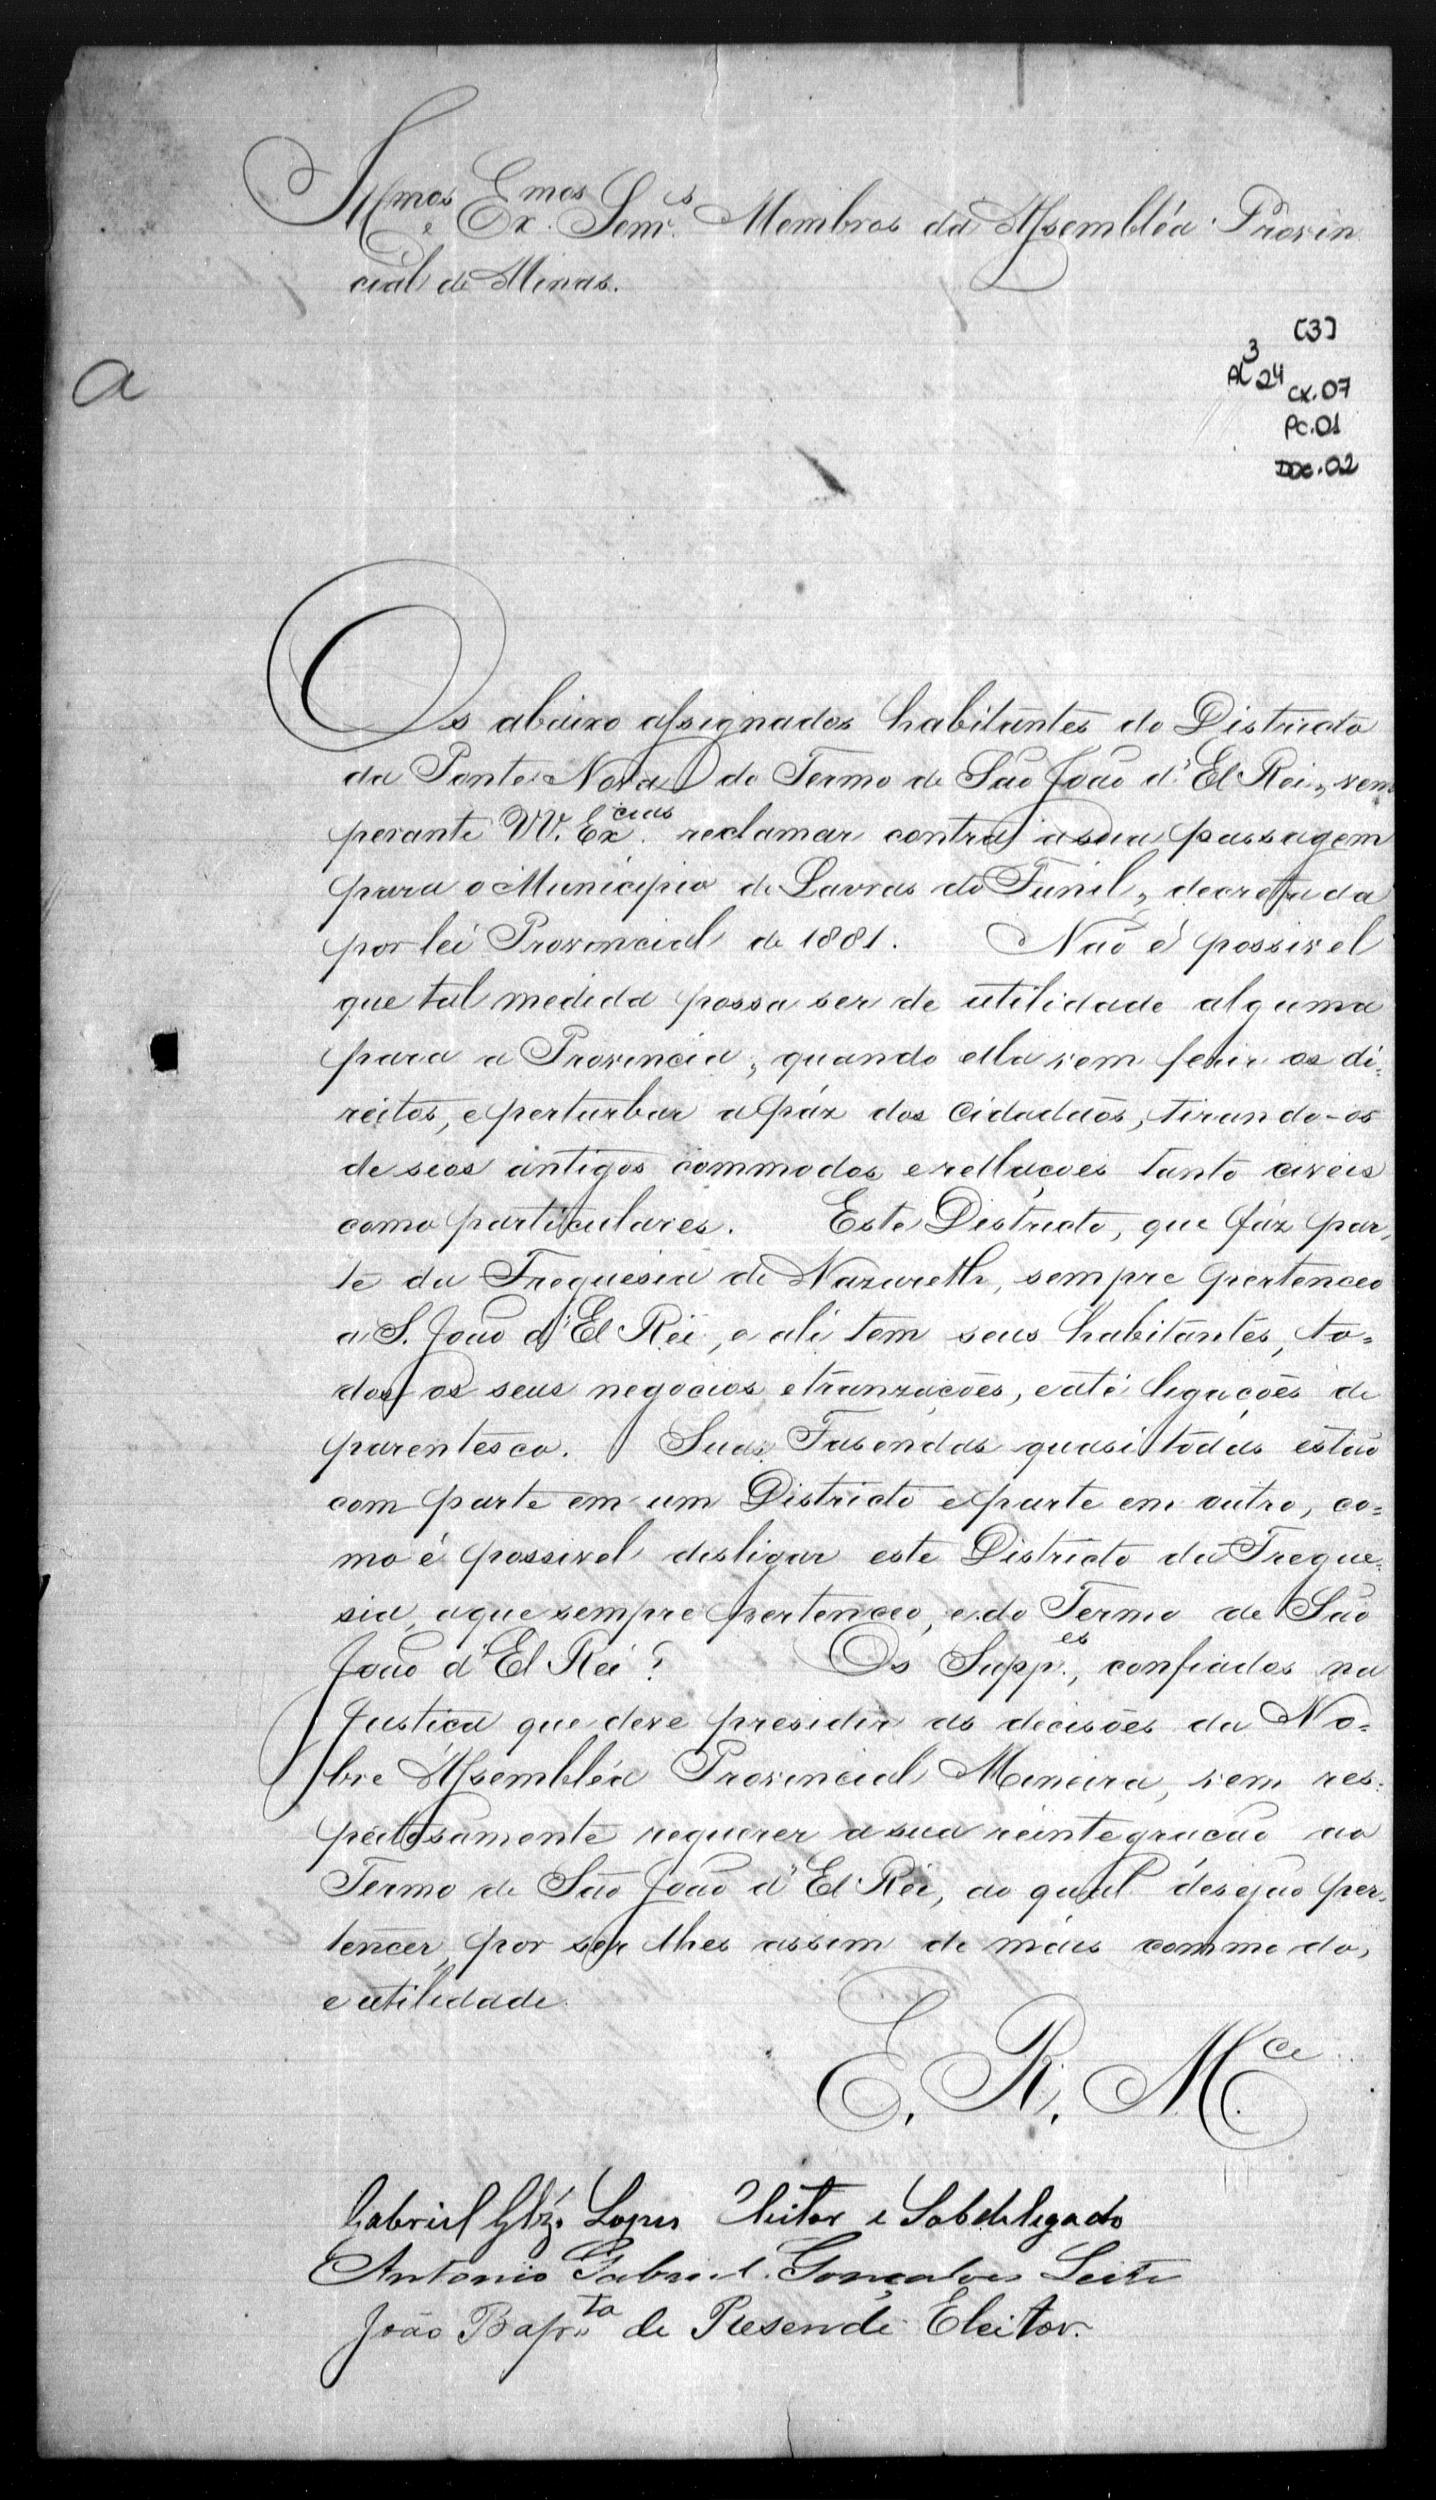 Illmos e Exmos Senrs Membros da Assembléa Provin
cial de Minas.
[3]
3
AL 24
CX.07
PC.01
DOC.02
a
Os abaixo assignados habitantes do Districto
da Ponte Nova do Termo de São João d'El Rei, vem
perante VV. Excias reclamar contra a sua passagem
para o Municipio de Lavras do Funil, decretada
por lei Provincial de 1881. Não é possivel
que tal medida possa ser de utilidade alguma
para a Provincia, quando ella vem ferir os di-
reitos, e perturbar a páz dos Cidadãos, tirando-os
de seos antigos commodos e rellações tanto civeis
como particulares. Este Districto, que fáz par-
te da Freguesia de Nazareth, sempre pertenceo
a S. João d'El Rei, e ali tem seus habitantes, to=
dos os seus negocios e tranzações, e até ligações de
parentesco. Suas Fasendas quasi todas estão
com parte em um Districto e parte em outro, co=
mo é possivel desligar este Districto da Fregue=
sia, a que sempre pertenceo, e do Termo de São
João d'El Rei? Os Suppes, confiados na
Justiça que deve presidir as decisões da No=
bre Assembléa Provincial Mineira, vem res=
peitosamente requerer a sua reintegração ao
Termo de São João d'El Rei, ao qual desejão per-
tencer, por ser lhes assim de mais commodo,
e utilidade.
E. R. Mce
Gabriel Glz. Lopes Eleitor e Subdelegado
Antonio Gabriel Gonçalves Leite
João Bapta de Resende Eleitor.